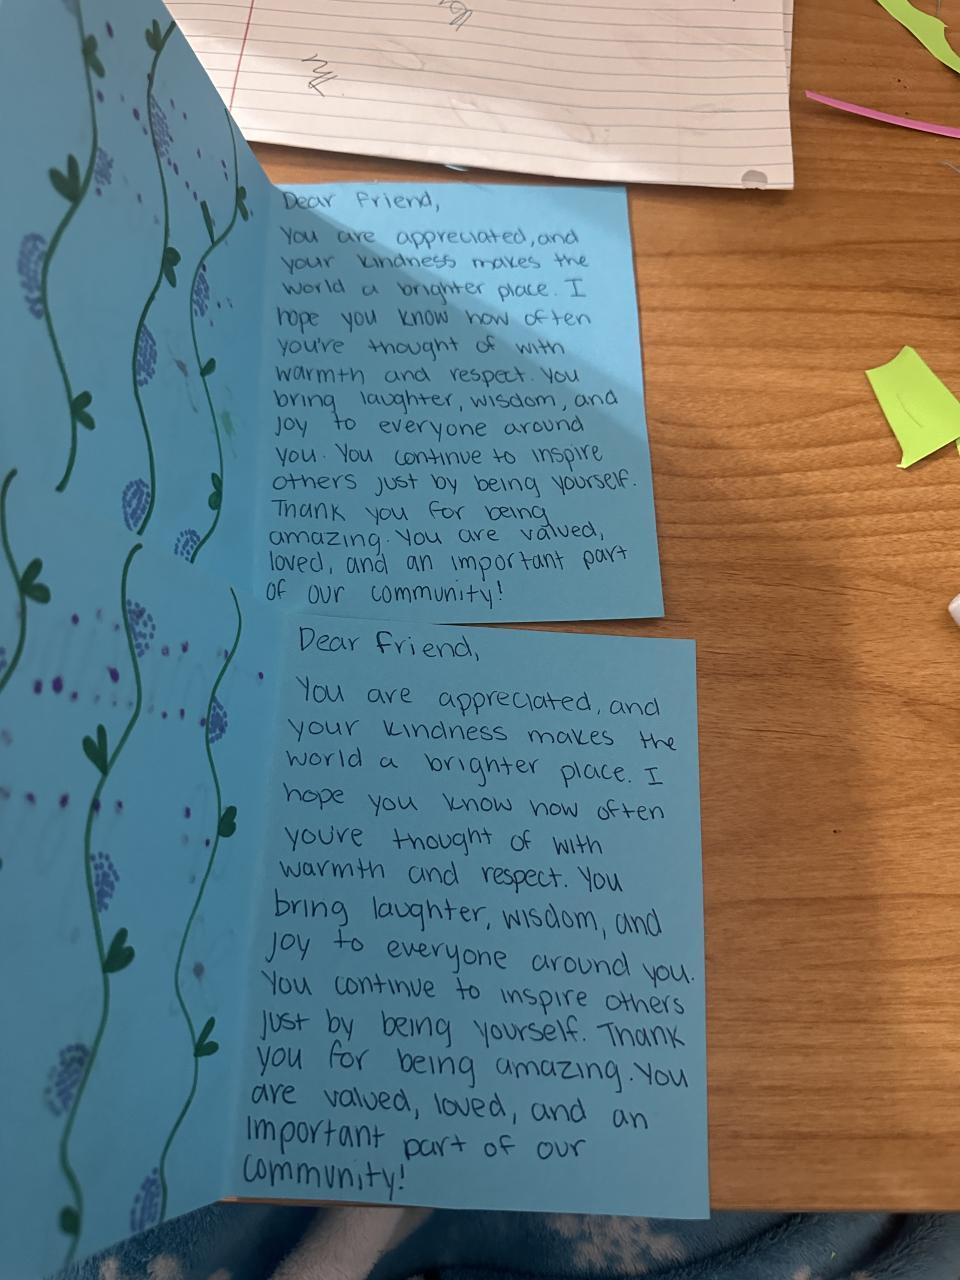 Dear Friend,
You are appreciated, and
your kindness makes the
world a brighter place. I
hope you know how often
you're thought of with
warmth and respect. You
bring laughter, wisdom, and
joy to everyone around
you. You continue to inspire
others just by being yourself.
Thank you for being
amazing. You are valued,
loved, and an important part
of our community!
Dear Friend,
You are appreciated, and
your kindness makes the
world a brighter place. I
hope you know how often
you're thought of with
warmth and respect. You
bring laughter, wisdom, and
joy to everyone around you.
You continue to inspire others
just by being yourself. Thank
you for being amazing. You
are valued, loved, and an
important part of our
community!